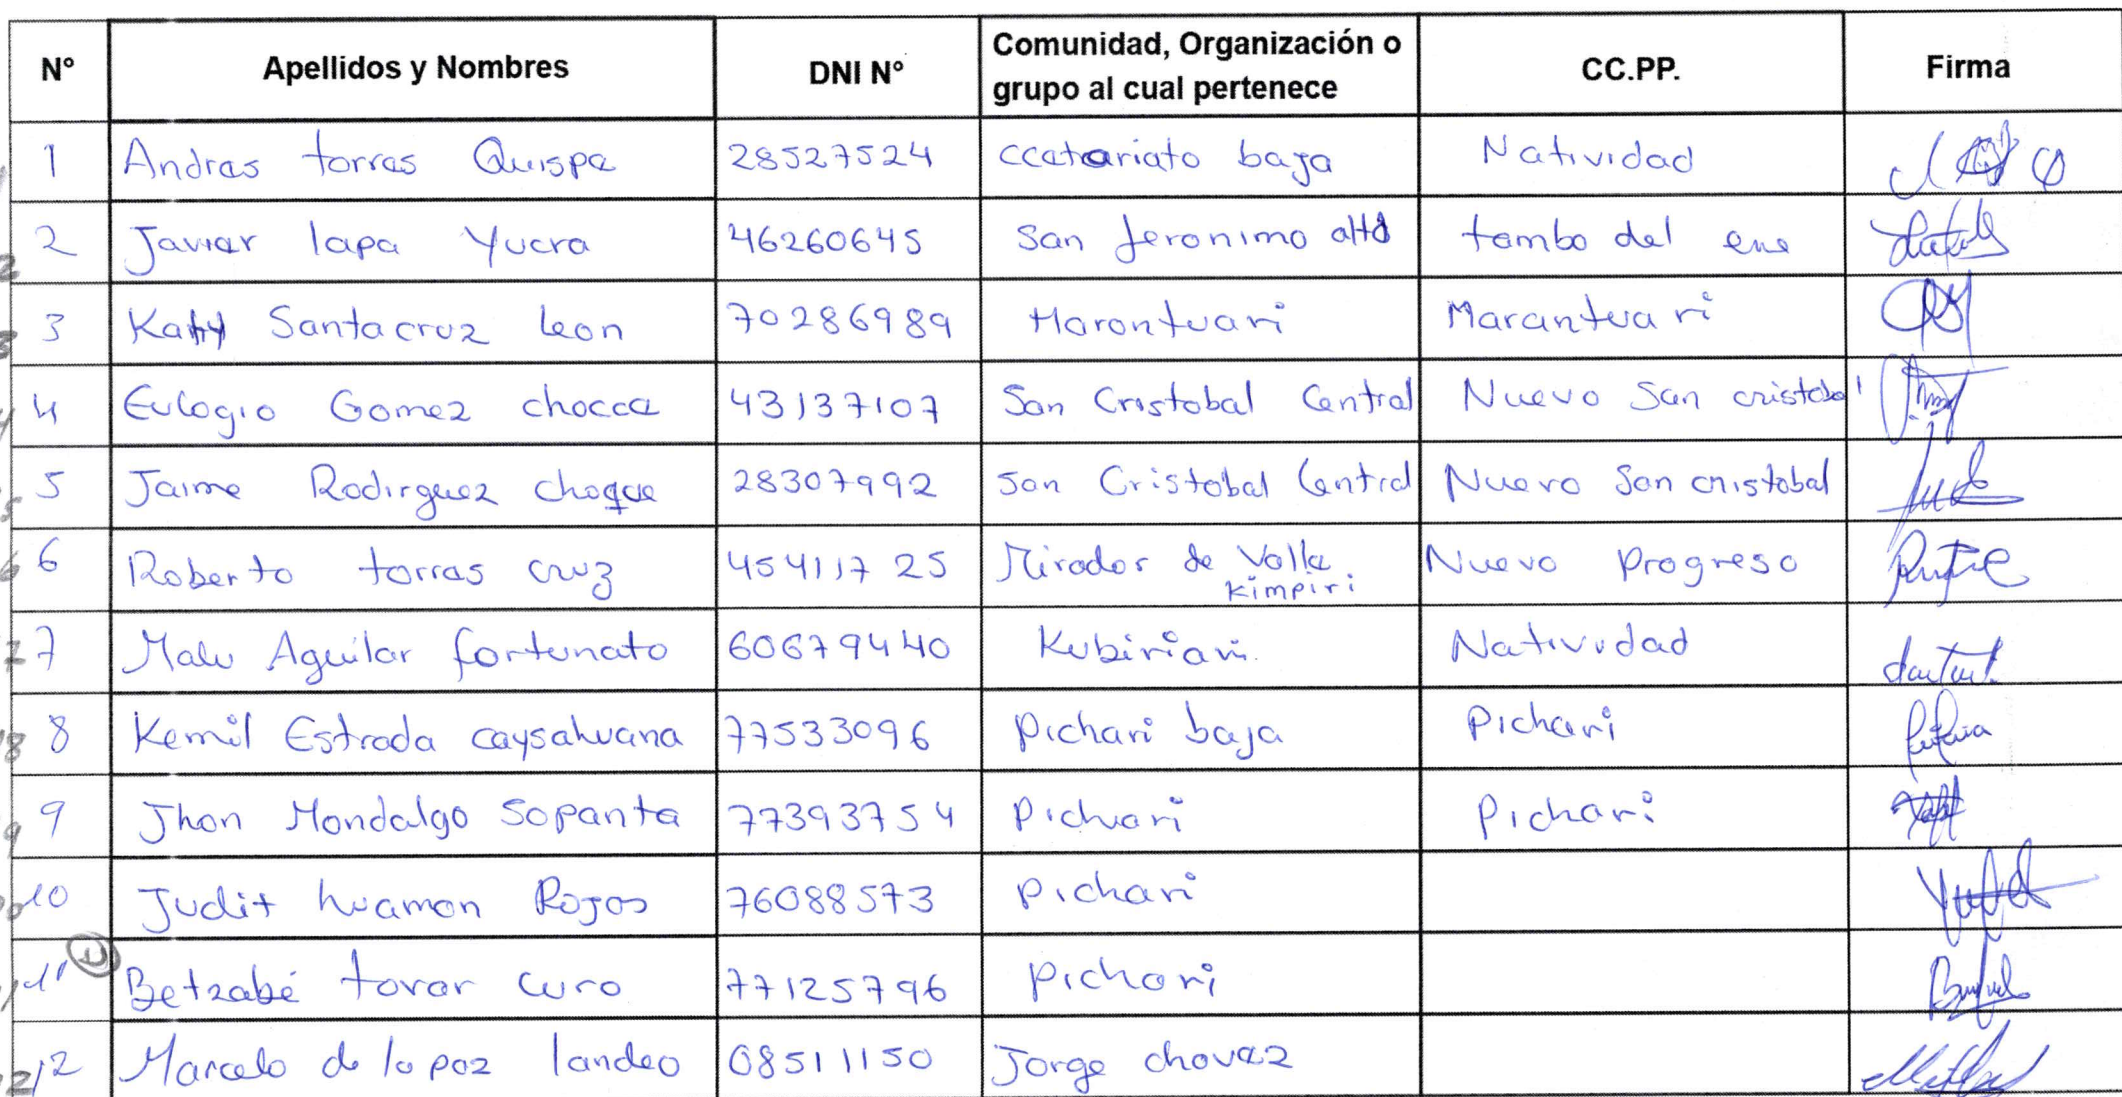 N° Apellidos y Nombres DNI N° Comunidad, Organización o grupo al cual pertenece CC.PP. Firma
1 Andres torres Quispe 28527524 ccatariato baja Natividad
2 Javier lapa Yucra 46260645 San Jeronimo alto tambo del ene
3 Katy Santacruz leon 70286989 Marontuari Marantuari
4 Eulogio Gomez chocce 43137107 San Cristobal Central Nuevo San cristobal
5 Jaime Rodirguez choque 28307992 San Cristobal Central Nuevo San cristobal
6 Roberto torres cruz 45411725 Mirador de Valle Kimpiri Nuevo Progreso
7 Malu Aguilar fortunato 60679440 Kubiriari Natividad
8 Kemil Estrada caysahuana 77533096 Pichari baja Pichari
9 Jhon Mondalgo Sopanta 77393754 Pichari Pichari
10 Judit huaman Rojas 76088573 Pichari
11 Betzabé tovar Curo 77125796 Pichari
12 Marcelo de la paz landeo 08511150 Jorge chavez